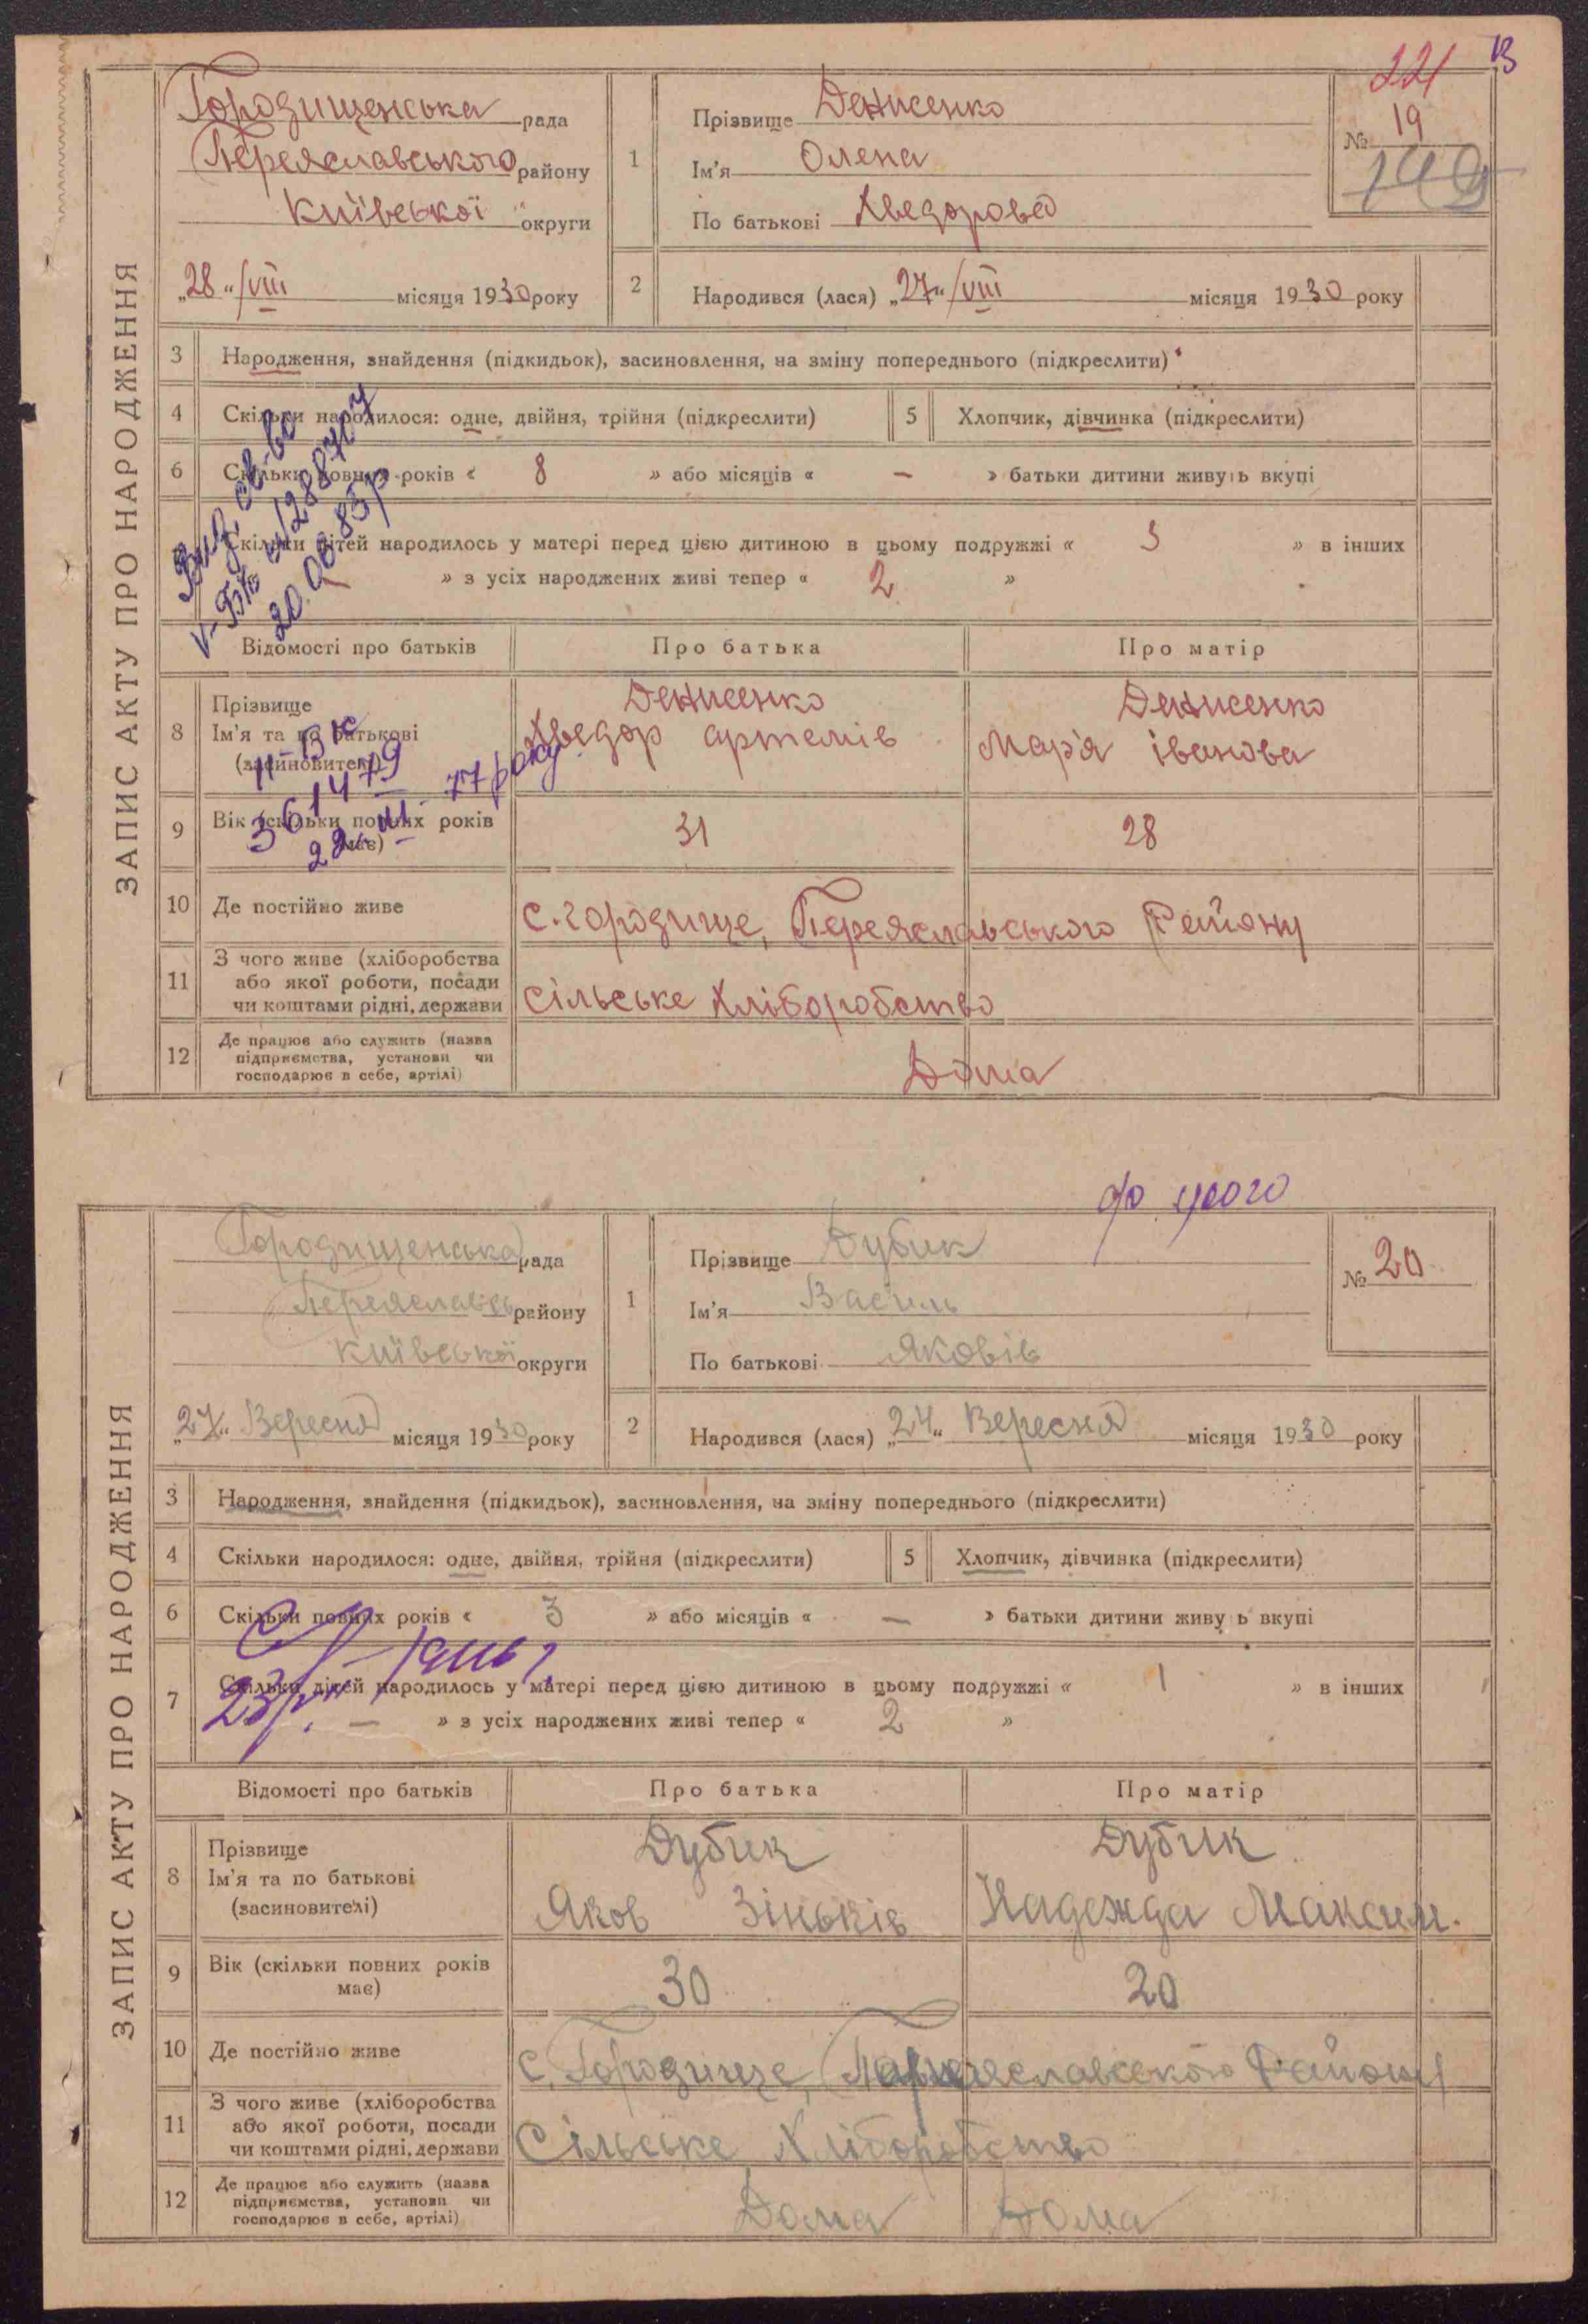 221 13
ЗАПИС АКТУ ПРО НАРОДЖЕННЯ
Городищенська рада
Переяславського району
Київської округи
„28“/VIII місяця 1930 року
1
Прізвище Денисенко
Ім'я Олена
По батькові Хведорова
№ 19
149
2
Народився (лася) „27“/VIII місяця 1930 року
3 Народження, знайдення (підкидьок), засиновлення, на зміну попереднього (підкреслити)
4 Скільки народилося: одне, двійня, трійня (підкреслити) 5 Хлопчик, дівчинка (підкреслити)
6 Скільки повних років « 8 » або місяців « — » батьки дитини живуть вкупі
Скільки дітей народилось у матері перед цією дитиною в цьому подружжі « 3 » в інших
— » з усіх народжених живі тепер « 2 »
Відомості про батьків Про батька Про матір
8 Прізвище
Ім'я та по батькові
(засиновителі)
Денисенко
Хведор Артемів
Денисенко
Мар'я Іванова
77 року
9 Вік (скільки повних років має) 31 28
10 Де постійно живе с. Городище, Переяславського Району
11 З чого живе (хліборобства
або якої роботи, посади
чи коштами рідні, держави
Сільське Хліборобство
12 Де працює або служить (назва
підприємства, установи чи
господарює в себе, артілі)
Дома
ЗАПИС АКТУ ПРО НАРОДЖЕННЯ
Городищенська рада
Переяславсь району
Київської округи
„27“ Вересня місяця 1930 року
1
Прізвище Дубик
Ім'я Василь
По батькові Яковів
№ 20
2
Народився (лася) „24“ Вересня місяця 1930 року
3 Народження, знайдення (підкидьок), засиновлення, на зміну попереднього (підкреслити)
4 Скільки народилося: одне, двійня, трійня (підкреслити) 5 Хлопчик, дівчинка (підкреслити)
6 Скільки повних років « 3 » або місяців « — » батьки дитини живуть вкупі
7 Скільки дітей народилось у матері перед цією дитиною в цьому подружжі « 1 » в інших
— » з усіх народжених живі тепер « 2 »
Відомості про батьків Про батька Про матір
8 Прізвище
Ім'я та по батькові
(засиновителі)
Дубик
Яков Зіньків
Дубик
Надежда Максим.
9 Вік (скільки повних років
має)
30 20
10 Де постійно живе с. Городище, Переяславського Району
11 З чого живе (хліборобства
або якої роботи, посади
чи коштами рідні, держави
Сільське Хліборобство
12 Де працює або служить (назва
підприємства, установи чи
господарює в себе, артілі)
Дома Дома